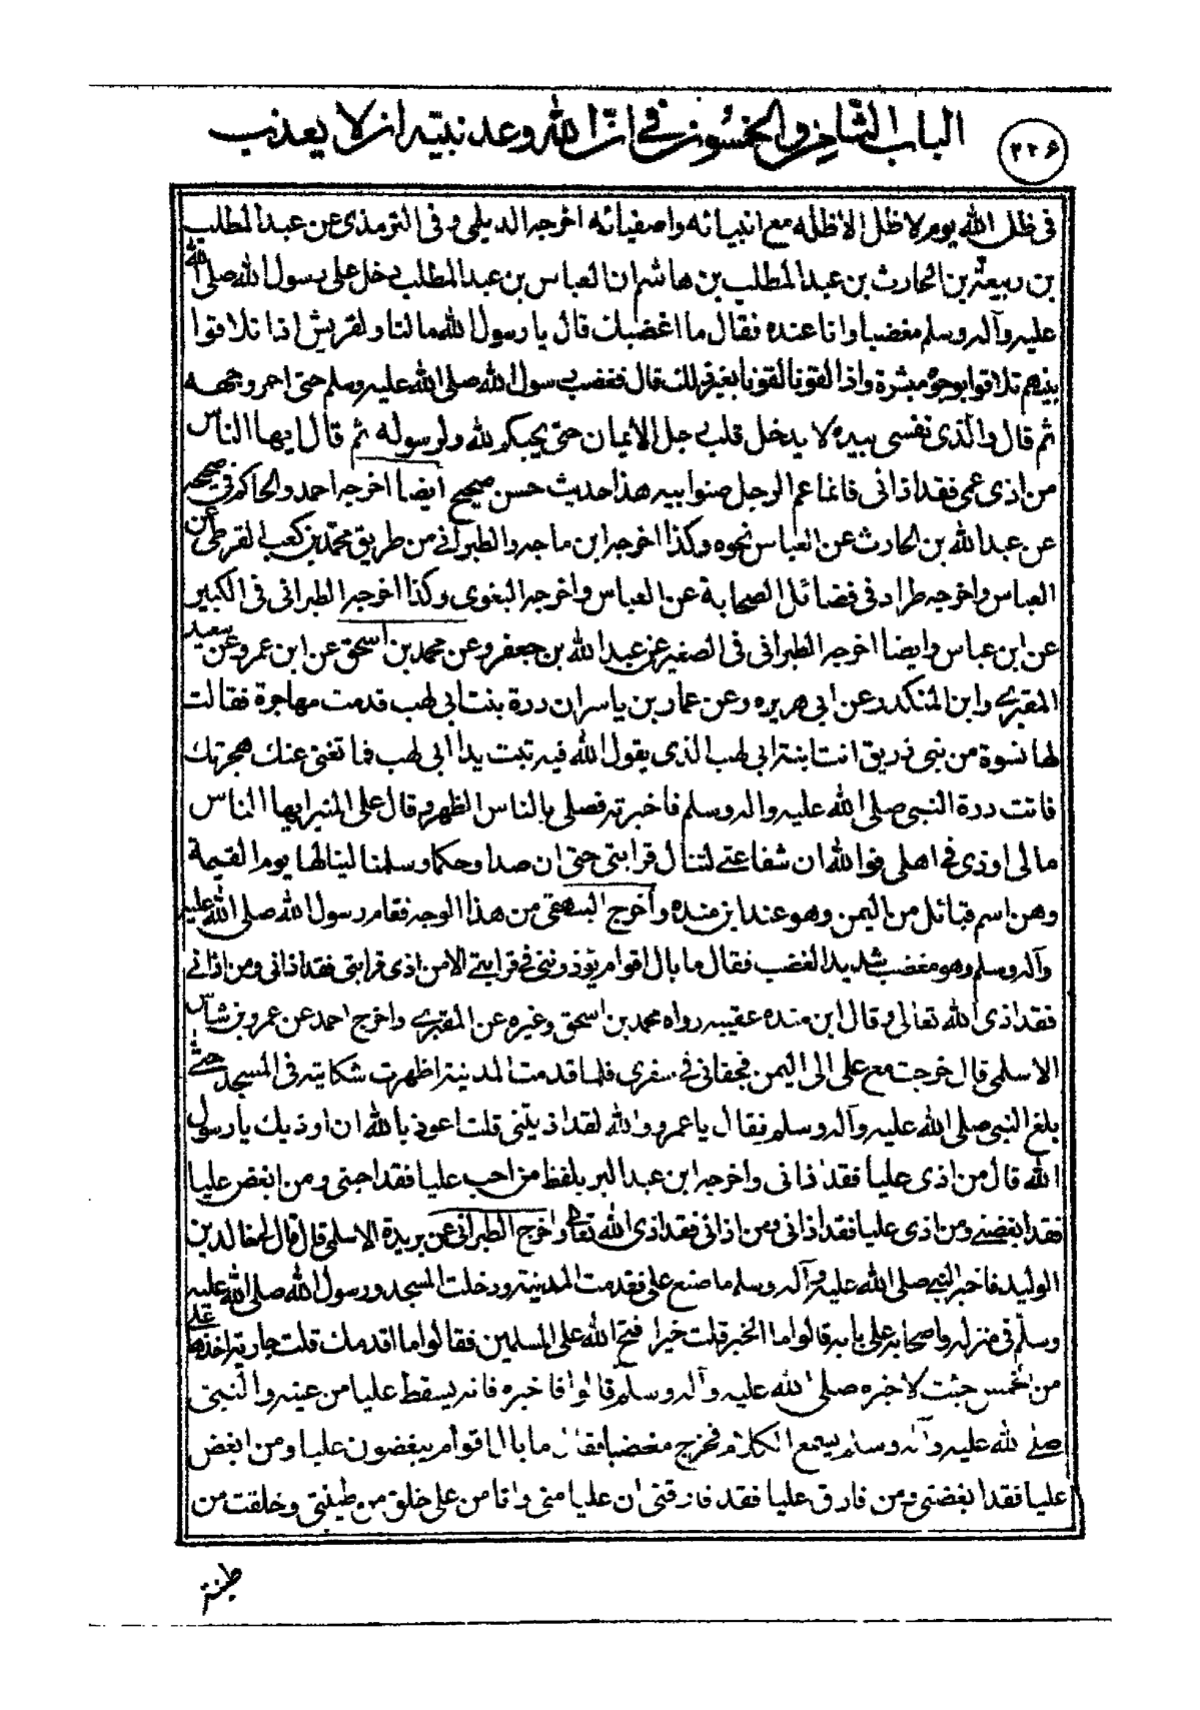 الباب الثامن والخمسون في ان الله وعد نبيه ان لا يعذب
٢٢۶
فى ظل الله يوم لا ظل الا ظله مع انبيائه واصفيائه اخرجه الديلمي وفى الترمذى عن عبد المطلب
بن ربيعة بن الحارث بن عبد المطلب بن هاشم ان العباس بن عبد المطلب دخل على رسول الله صلى الله
عليه وآله وسلم مغضبا وانا عنده فقال ما اغضبك قال يا رسول الله ما لنا ولقريش اذا تلاقوا
بينهم تلاقوا بوجوه مبشرة واذا لقونا لقونا بغير ذلك قال فغضب رسول الله صلى الله عليه وسلم حتى احمر وجهه
ثم قال والذى نفسى بيده لا يدخل قلب رجل الايمان حتى يحبكم لله ولرسوله ثم قال ايها الناس
من اذى عمى فقد اذانى فانما عم الرجل صنو ابيه هذا حديث حسن صحيح ايضا اخرجه احمد والحاكم في صحيحه
عن عبد الله بن الحارث عن العباس نحوه وكذا اخرجه ابن ماجه والطبراني من طريق محمد بن كعب القرظى عن
العباس واخرجه طراد فى فضائل الصحابة عن العباس واخرجه البغوى وكذا اخرجه الطبرانى فى الكبير
عن ابن عباس وايضا اخرجه الطبرانى فى الصغير عن عبد الله بن جعفر وعن محمد بن اسحق عن ابن عمر وعن سعيد
المقبرى وابن المنكدر وعن ابى هريره وعن عمار بن ياسر ان درة بنت ابى لهب قدمت مهاجرة فقالت
لها نسوة من بنى زريق انت ابنة ابى لهب الذى يقول الله فيه تبت يدا ابى لهب فما تغنى عنك هجرتك
فاتت درة النبى صلى الله عليه واله وسلم فاخبرته فصلى بالناس الظهر وقال على المنبر ايها الناس
ما لى اوذى فى اهلى فوالله ان شفاعتى لتنال قرابتى حتى ان صدا وحكما وسلمنا لينالها يوم القيمة
وهن اسم قبائل من اليمن وهو عند ابن منده واخرج البيهقى من هذا الوجه فقام رسول الله صلى الله عليه
وآله وسلم وهو مغضب شديد الغضب فقال ما بال اقوام يؤذوننى في قرابتى الا من اذى قرابتى فقد اذانى ومن اذانى
فقد اذى الله تعالى وقال ابن منده عقيبه رواه محمد بن اسحق وغيره عن المقبرى واخرج احمد عن عمرو بن شاس
الاسلمى قال خرجت مع على الى اليمن فجفانى في سفرى فلما قدمت المدينة اظهرت شكايته فى المسجد حتى
بلغ النبى صلى الله عليه وآله وسلم فقال يا عمرو والله لقد اذيتنى قلت اعوذ بالله ان اوذيك يا رسول
الله قال من اذى عليا فقد اذانى واخرجه ابن عبد البر بلفظ من احب عليا فقد احبنى ومن ابغض عليا
فقد ابغضنى ومن اذى عليا فقد اذانى ومن اذانى فقد اذى الله تعالى واخرج الطبرانى عن بريدة الاسلمى قال قال لى خالد بن
الوليد فاخبر النبى صلى الله عليه وآله وسلم ما صنع على فقدمت المدينة ودخلت المسجد ورسول الله صلى الله عليه
وسلم فى منزله واصحابه على بابه قالوا ما الخبر قلت خيرا فتح الله على المسلمين فقالوا ما اقدمك قلت جارية اخذها على
من الخمس جئت لاخبره صلى الله عليه وآله وسلم قالوا فاخبره فانه يسقط عليا من عينه والنبى
صلى الله عليه وآله وسلم يسمع الكلام فخرج مغضبا فقال ما بال اقوام يبغضون عليا ومن ابغض
عليا فقد ابغضنى ومن فارق عليا فقد فارقنى ان عليا منى وانا من على خلق من طينتى وخلقت من
طينة